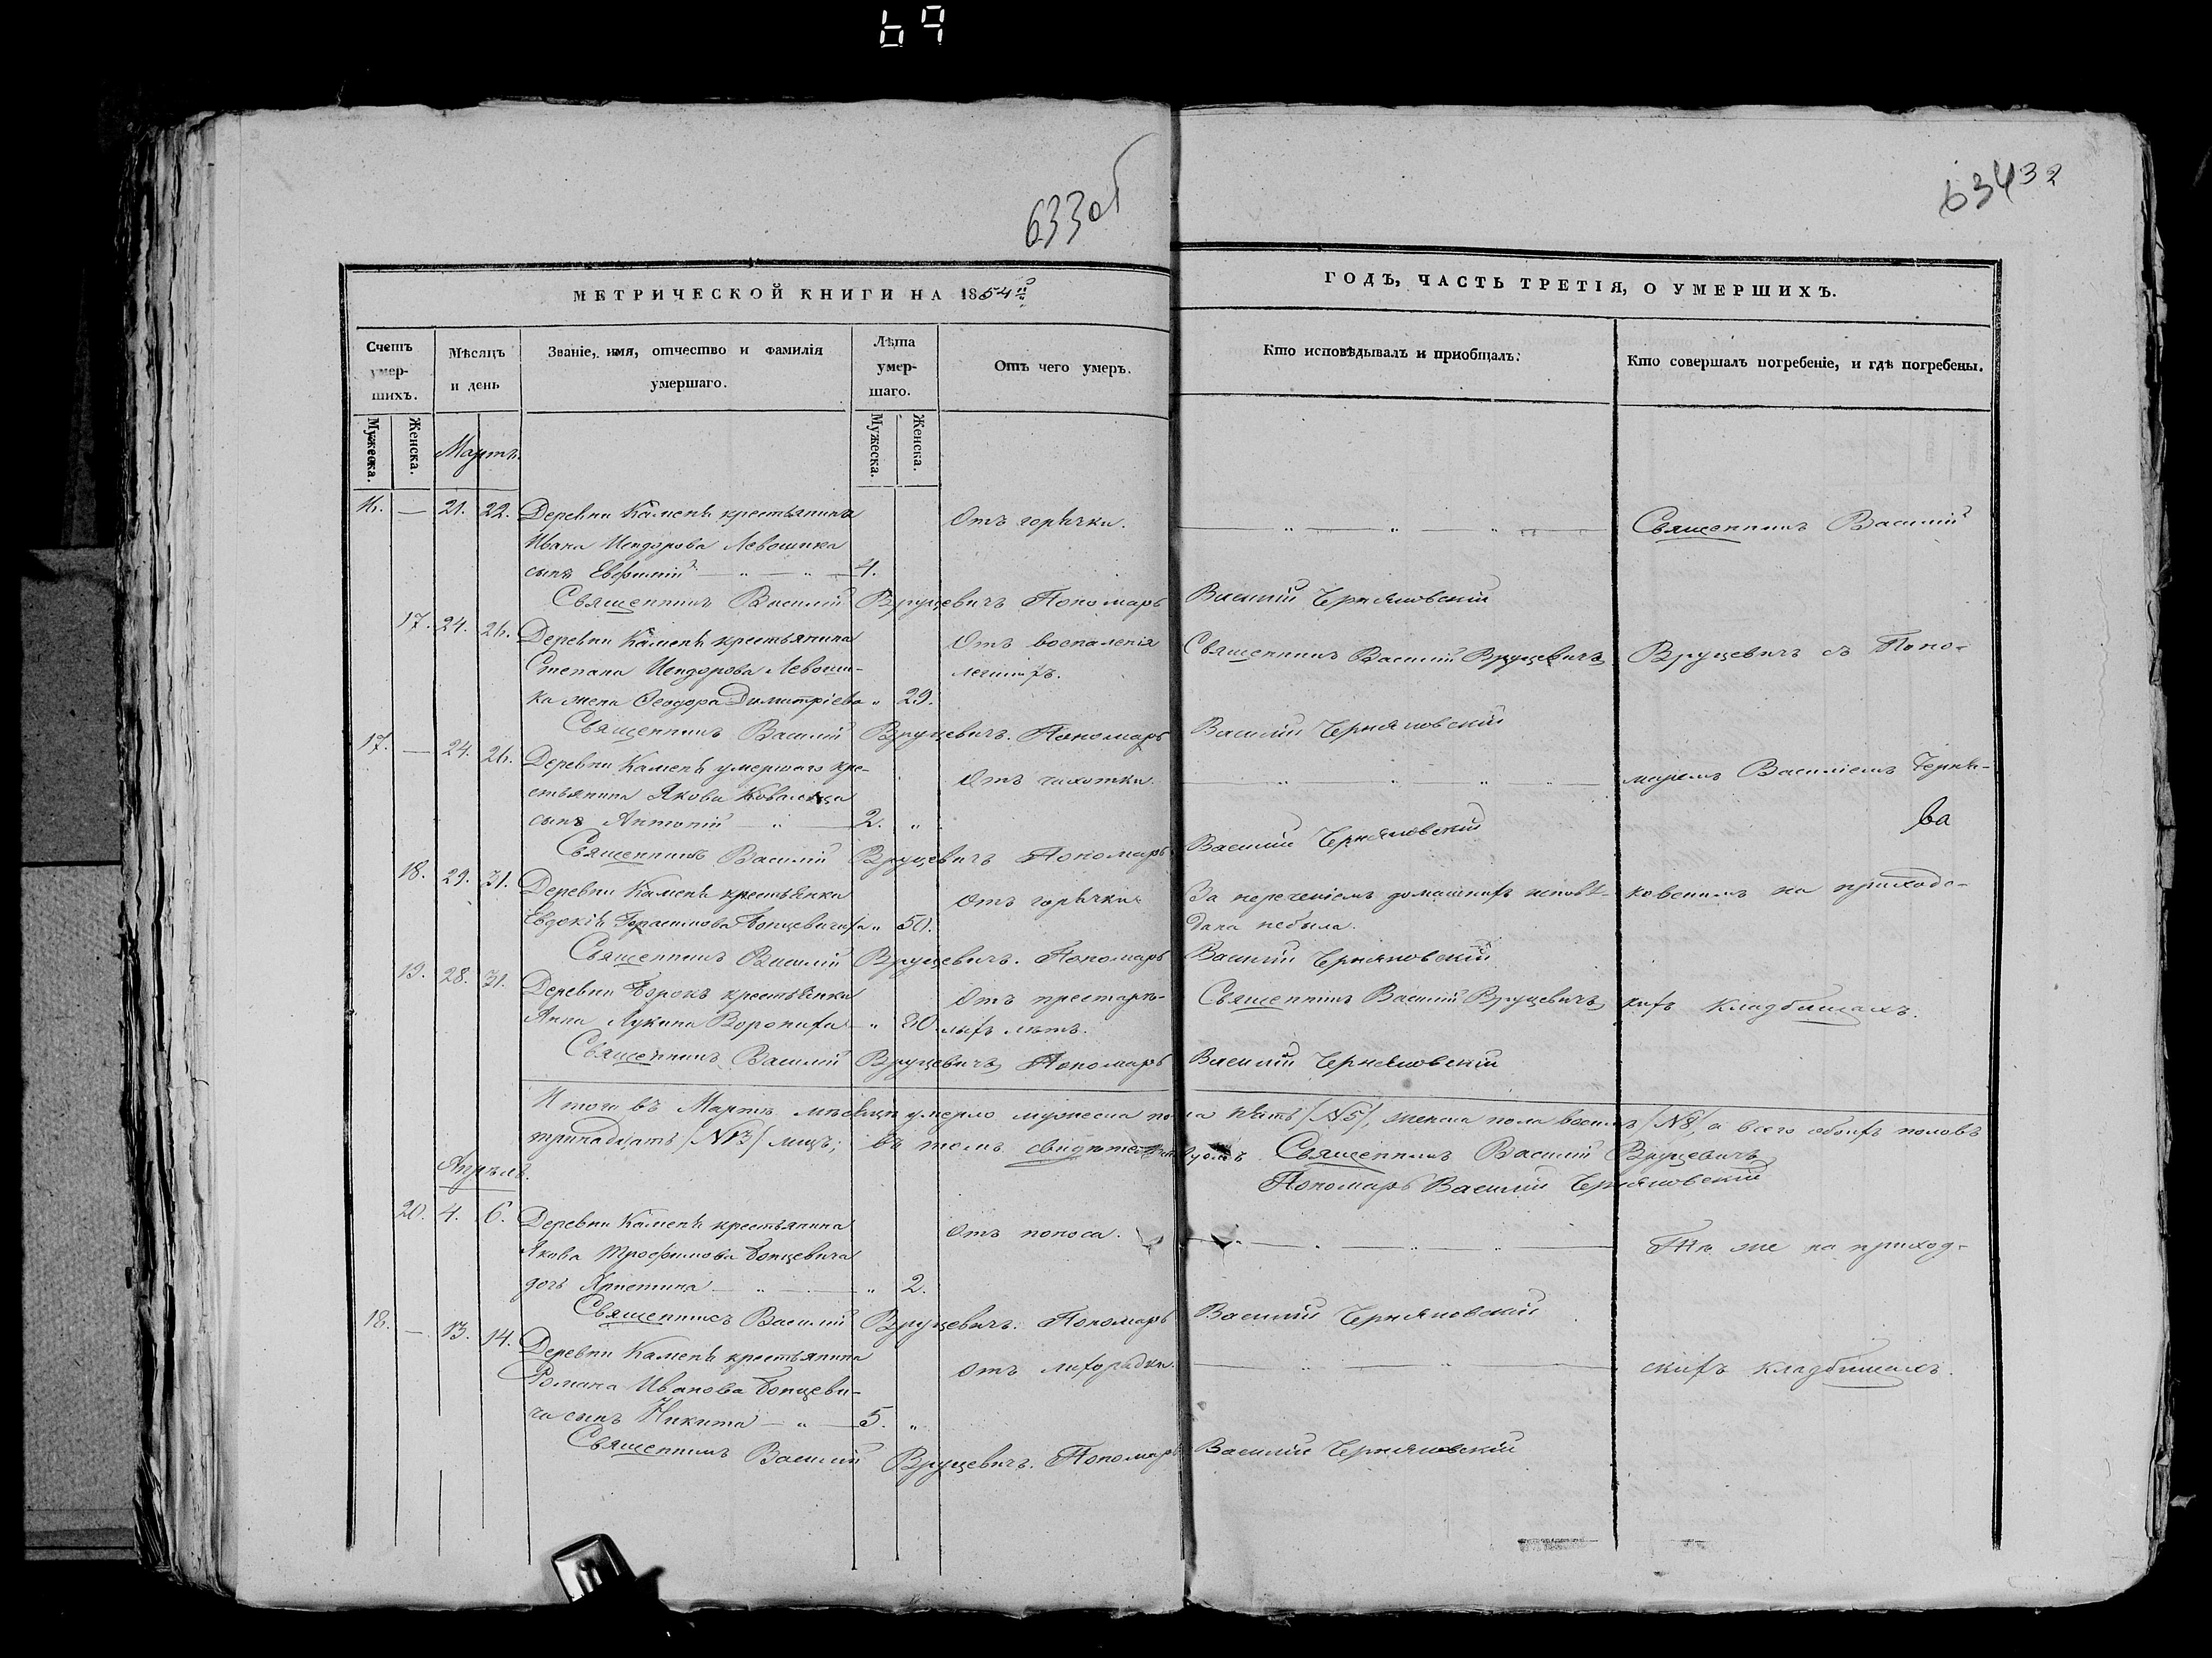 633об
63432
МЕТРИЧЕСКОЙ КНИГИ НА 1854й
ГОДЪ, ЧАСТЬ ТРЕТІЯ, О УМЕРШИХЪ.
Счетъ умер-шихъ.
Мѣсяцъ и день
Званіе, имя, отчество и фамилія умершаго.
Лѣта умер-шаго.
Отъ чего умеръ.
Кто исповѣдывалъ и пріобщалъ:
Кто совершалъ погребеніе, и гдѣ погребены.
Мужеска. Женска. Мужеска. Женска.
Мартъ.
16. — 21. 22. Деревни Камень крестьянина Отъ горячки. Священникъ Василій
Ивана Исидорова Левошика
сынъ Евфимій 4.
Священникъ Василій Вруцевичъ Пономарь Василій Черняковскій
17. 24. 26. Деревни Камень крестьянина Отъ воспаленія Священникъ Василій Вруцевичъ Вруцевичъ съ Поно-
Степана Исидорова Левоши- легкихъ.
ка жена Ѳеодора Димитріева „ 29.
Священникъ Василій Вруцевичъ. Пономарь Василій Черняковскій
17. — 24. 26. Деревни Камень умершаго кре- Отъ чахотки. маремъ Василіемъ Черня-
стьянина Якова
сынъ Антоній 2. „ ва
Священникъ Василій Вруцевичъ Пономарь Василій Черняковскій
18. 29. 31. Деревни Камень крестьянка Отъ горячки За нереченіемъ домашнихъ исповѣ- ковскимъ на приходс-
Евдокія Герасимова Бонцевичиха „ 50. дана небыла.
Священникъ Василій Вруцевичъ. Пономарь Василій Черняковскій
19. 28. 31. Деревни Борокъ крестьянка Отъ престарѣ- Священникъ Василій Вруцевичъ кихъ кладбищахъ.
Анна Лукина Ворониха „ 80 лыхъ лѣтъ.
Священникъ Василій Вруцевичъ Пономарь Василій Черняковскій
Итого въ Мартѣ мѣсяцѣ умерло мужеска пола пять /№5/, женска пола восемь /№8/, а всего обоихъ половъ
тринадцать /№13/ лицъ; въ томъ Священникъ Василій Вруцевичъ
Пономарь Василій Черняковскій
Апрѣль.
20. 4. 6. Деревни Камень крестьянина Отъ поноса. Тѣ же на приход-
Якова Трофимова Бонцевича
дочь Христина „ 2.
Священникъ Василій Вруцевичъ. Пономарь Василій Черняковскій
18. — 13. 14. Деревни Камень крестьянина Отъ лихорадки. скихъ кладбищахъ.
Романа Иванова Бонцеви-
ча сынъ Никита — „ — 5. „
Священникъ Василій Вруцевичъ. Пономарь Василій Черняковскій